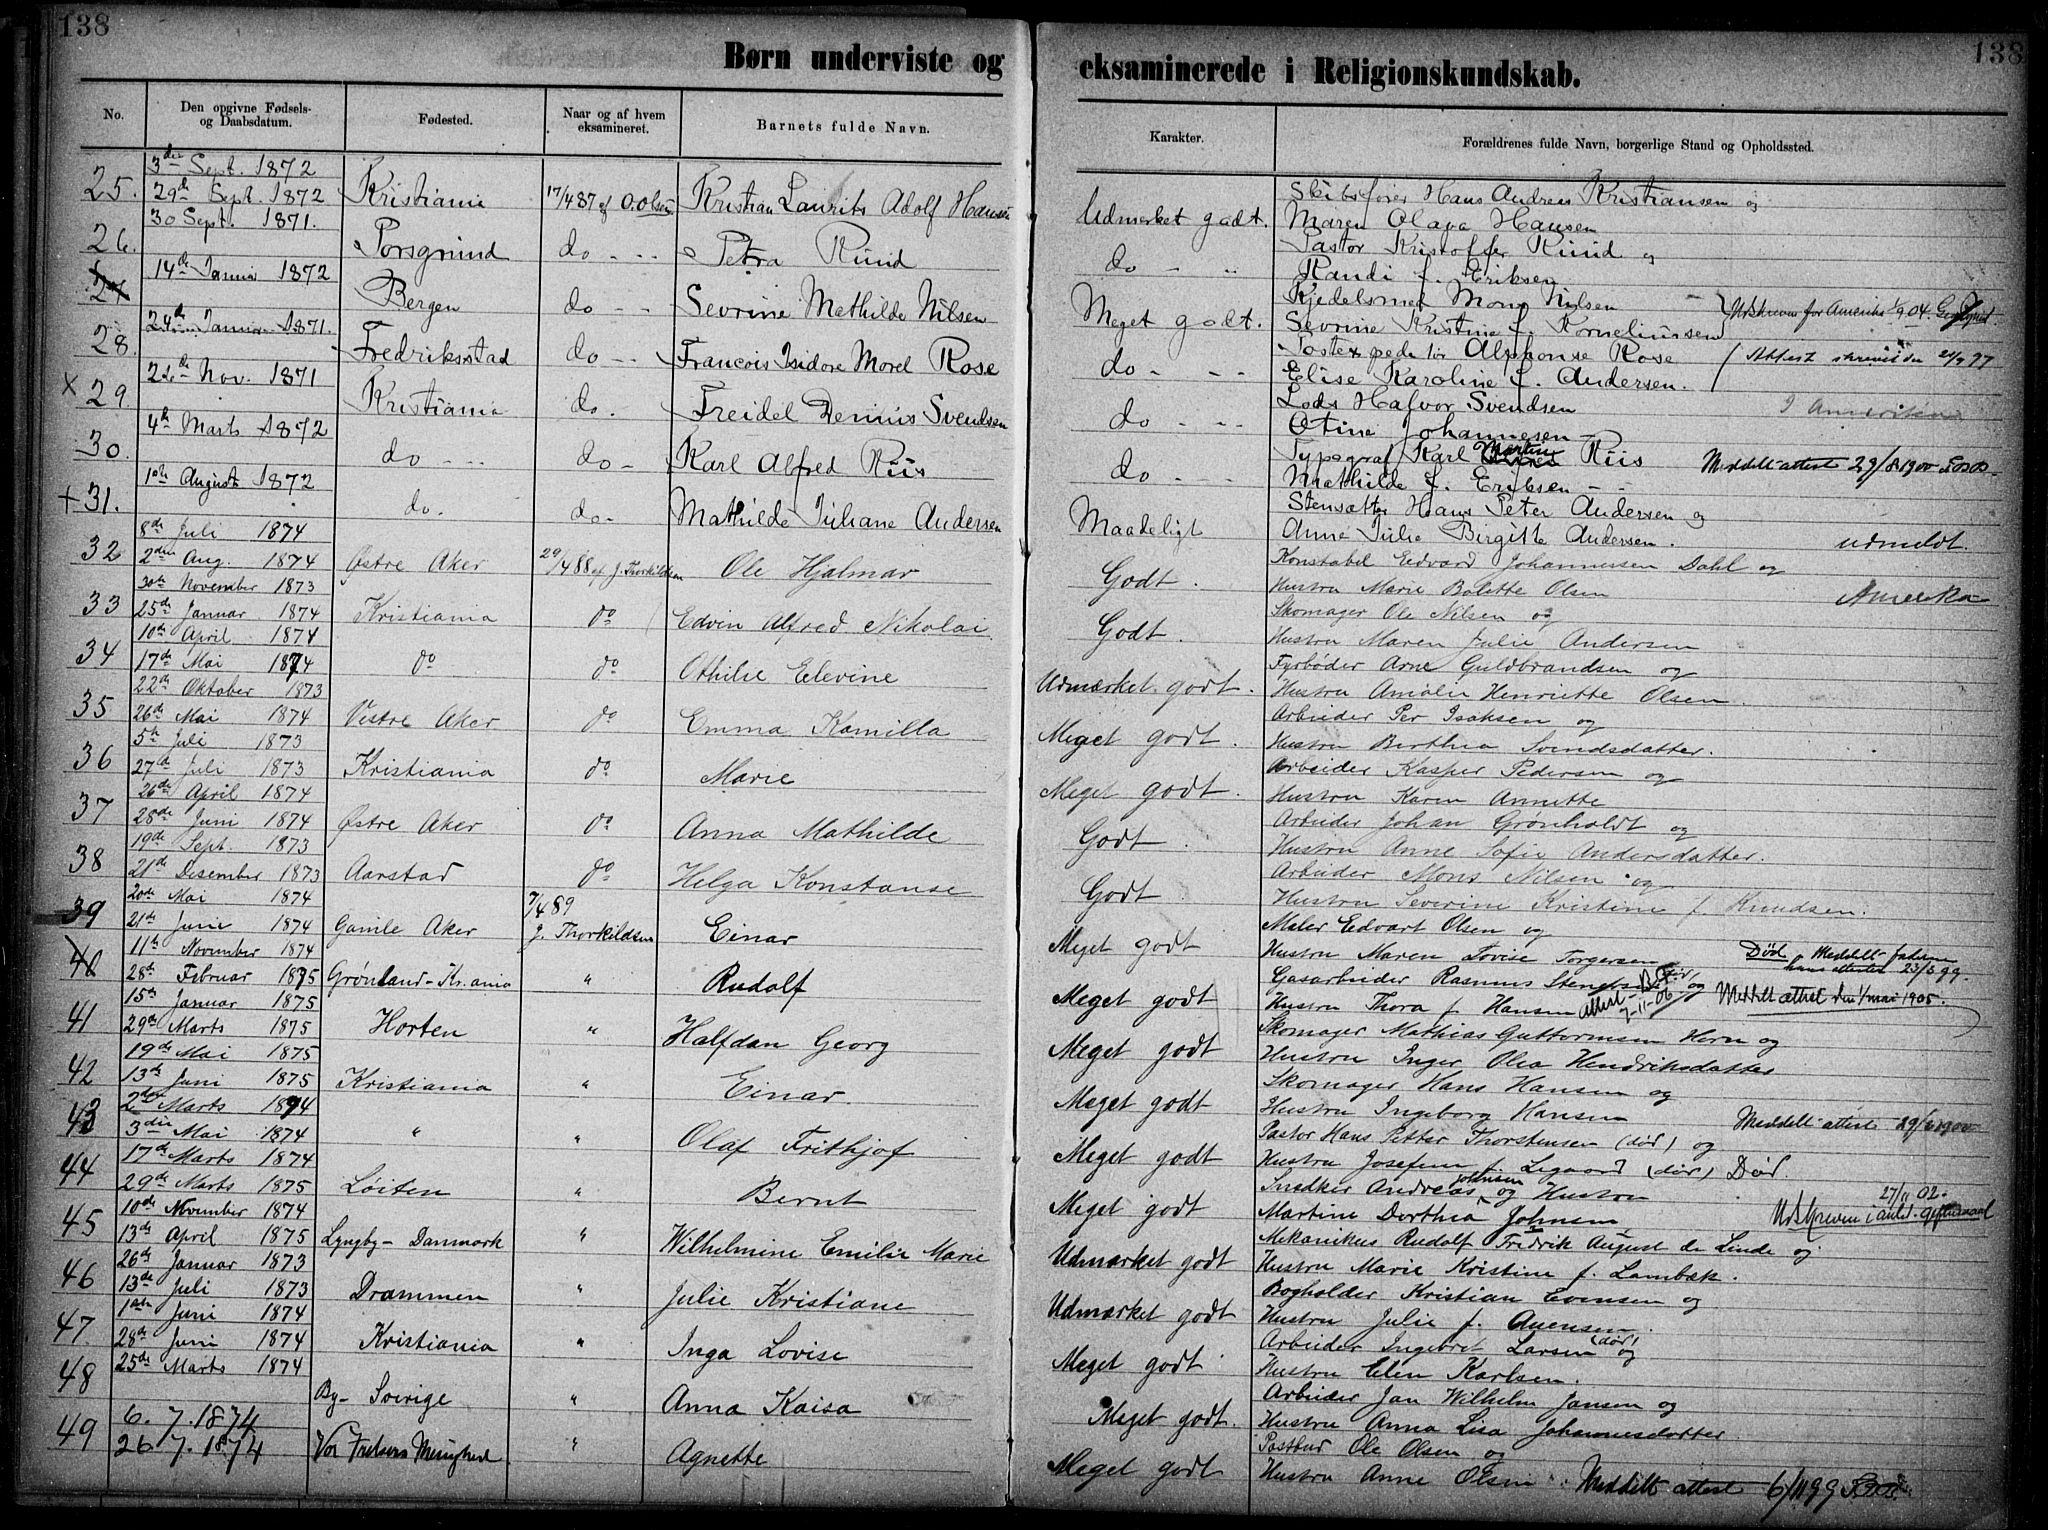 138
138
Børn underviste og eksaminerede i Religionskundskab.
No. Den opgivne Fødsels- og Daabsdatum. Fødested. Naar og af hvem eksamineret. Barnets fulde Navn. Karakter. Forældrenes fulde Navn, borgerlige Stand og Opholdssted.
3die Sept. 1872
25. 29de Sept. 1872 Kristiania 17/4 87 af O. Olsen Kristian Laurits Adolf Hansen Udmerket godt. Skibsfører Hans Andreas Kristiansen og
Maren Olava Hansen
30 Sept. 1871.
26. Porsgrund do - - - Petra Rund do - " Pastor Kristoffer Rund og
Randi f. Eriksen
14de Januar 1872
27 Bergen do - - Sevrine Mathilde Nilsen Meget godt. Kjedelsmed Mons Nilsen
Sevrine Kristine f. Korneliussen Udskreven for Amerika 1/9 04.
24de Januar 1871.
28. Fredriksstad do - - Francois Isidore Morel Rose do - - - Postexpeditør Alphonse Rose
Elise Karoline f. Andersen. Attest skrevet den
26de Nov. 1871
x 29. Kristiania do. Freidel Dennis Svendsen do - - - Lods Halvor Svendsen
Otine Johannesen I Amerika
4th Marts 1872
30. do - - - do - Karl Alfred Riis do - - - Typograf Karl Martin Riis
Mathilde f. Eriksen - - Meddelt attest 29/8 1900
1ste August 1872
+ 31. do. do - Mathilde Juliane Andersen Maadeligt Stensætter Hans Peter Andersen og
Anne Julie Birgitte Andersen. udmeldt.
8de Juli 1874
32 2den Aug. 1874 Østre Aker 29/4 88 af J. Thorkildsen Ole Hjalmar Godt. Konstabel Edvard Johannessen Dahl og
Hustru Marie Bolette Olsen Amerika
30te November 1873
33 25de Januar 1874 Kristiania do Edvin Alfred Nikolai Godt. Skomager Ole Nilsen og
Hustru Maren Julie Andersen
10de April 1874
34 17de Mai 1874 do do Othilie Elevine Udmærket godt. Fyrbøder Arne Guldbrandsen og
Hustru Amalie Henriette Olsen.
22de Oktober 1873
35 26de Mai 1874 Vestre Aker do Emma Kamilla Meget godt. Arbeider Per Isaksen og
Hustru Berthea Svendsdatter.
5te Juli 1873
36 27de Juli 1873 Kristiania do Marie Meget godt. Arbeider Kasper Pedersen og
Hustru Karen Annette
26de April 1874
37 28de Juni 1874 Østre Aker do Anna Mathilde Godt. Arbeider Johan Grønholdt og
Hustru Anne Sofie Andersdatter.
19de Sept. 1873
38 21de Desember 1873 Aarstad do Helga Konstanse Godt. Arbeider Mons Nilsen og
Hustru Severine Kristine f. Knudsen.
20de Mai 1874
39 21de Juni 1874 Gamle Aker 7/4 89 J. Thorkildsen Einar Meget godt Maler Edvart Olsen og
Hustru Maren Lovise Torgersen Død Meddelt faderen hans attester 23/5 99.
11te November 1874
40 28de Februar 1875 Grønland - Kr.ania " Rudolf Meget godt Gasarbeider Rasmus og
Hustru Thora f. Hansen attest 7-11-06 Meddelt attest den 1/mai 1905.
15de Januar 1875
41 29de Marts 1875 Horten " Halfdan Georg Meget godt Skomager Mathias Guttormsen Horn og
Hustru Inger Olea Hendriksdatter
19de Mai 1875
42 13de Juni 1875 Kristiania " Einar Meget godt Skomager Hans Hansen og
Hustru Ingeborg Hansen Meddelt attest 29/6 1900
2den Marts 1874
43 3die Mai 1874 " " Olaf Frithjof Meget godt Pastor Hans Petter Thorstensen (død) og
Hustru Josefine f. Legaard (død) Død.
17de Marts 1874
44 29de Marts 1875 Løiten " Bernt Meget godt Snedker Andreas Johnsen og Hustru
Martine Dorthea Johnsen Udskreven 27/11 02.
10de November 1874
45 13de April 1875 Lyngby - Danmark " Wilhelmine Emilie Marie Udmærket godt Mekanikus Rudolf Fredrik August de Linde og
Hustru Marie Kristine f. Lambæk.
26de Januar 1873
46 13de Juli 1873 Drammen " Julie Kristiane Udmærket godt Bogholder Kristian Evensen og
Hustru Julie f. Auensen.
1ste Juni 1874
47. 28de Juni 1874 Kristiania " Inga Lovise Meget godt. Arbeider Ingebret Larsen (død) og
Hustru Elen Karlsen.
25de Marts 1874
48 By - Sverige " Anna Kaisa Meget godt. Arbeider Jan Wilhelm Jansen og
Hustru Anna Lisa Johannesdatter.
6. 7. 1874
49 26. 7. 1874 Vor Frelsers Menighed " Agnette Meget godt. Postbud Ole Olsen og
Hustru Anne Olsen Meddelt attest 6/11 99